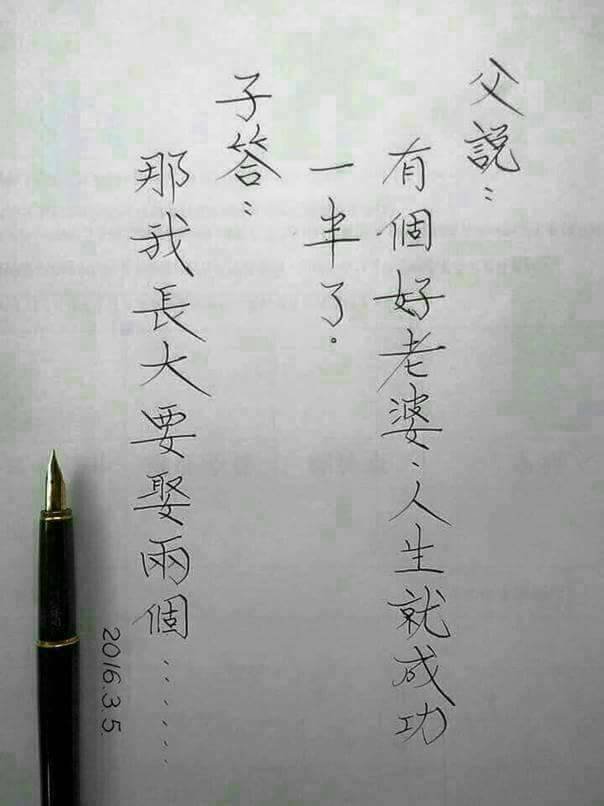 父說：
有個好老婆、人生就成功
一半了。
子答：
那我長大要娶兩個.......
2016.3.5.